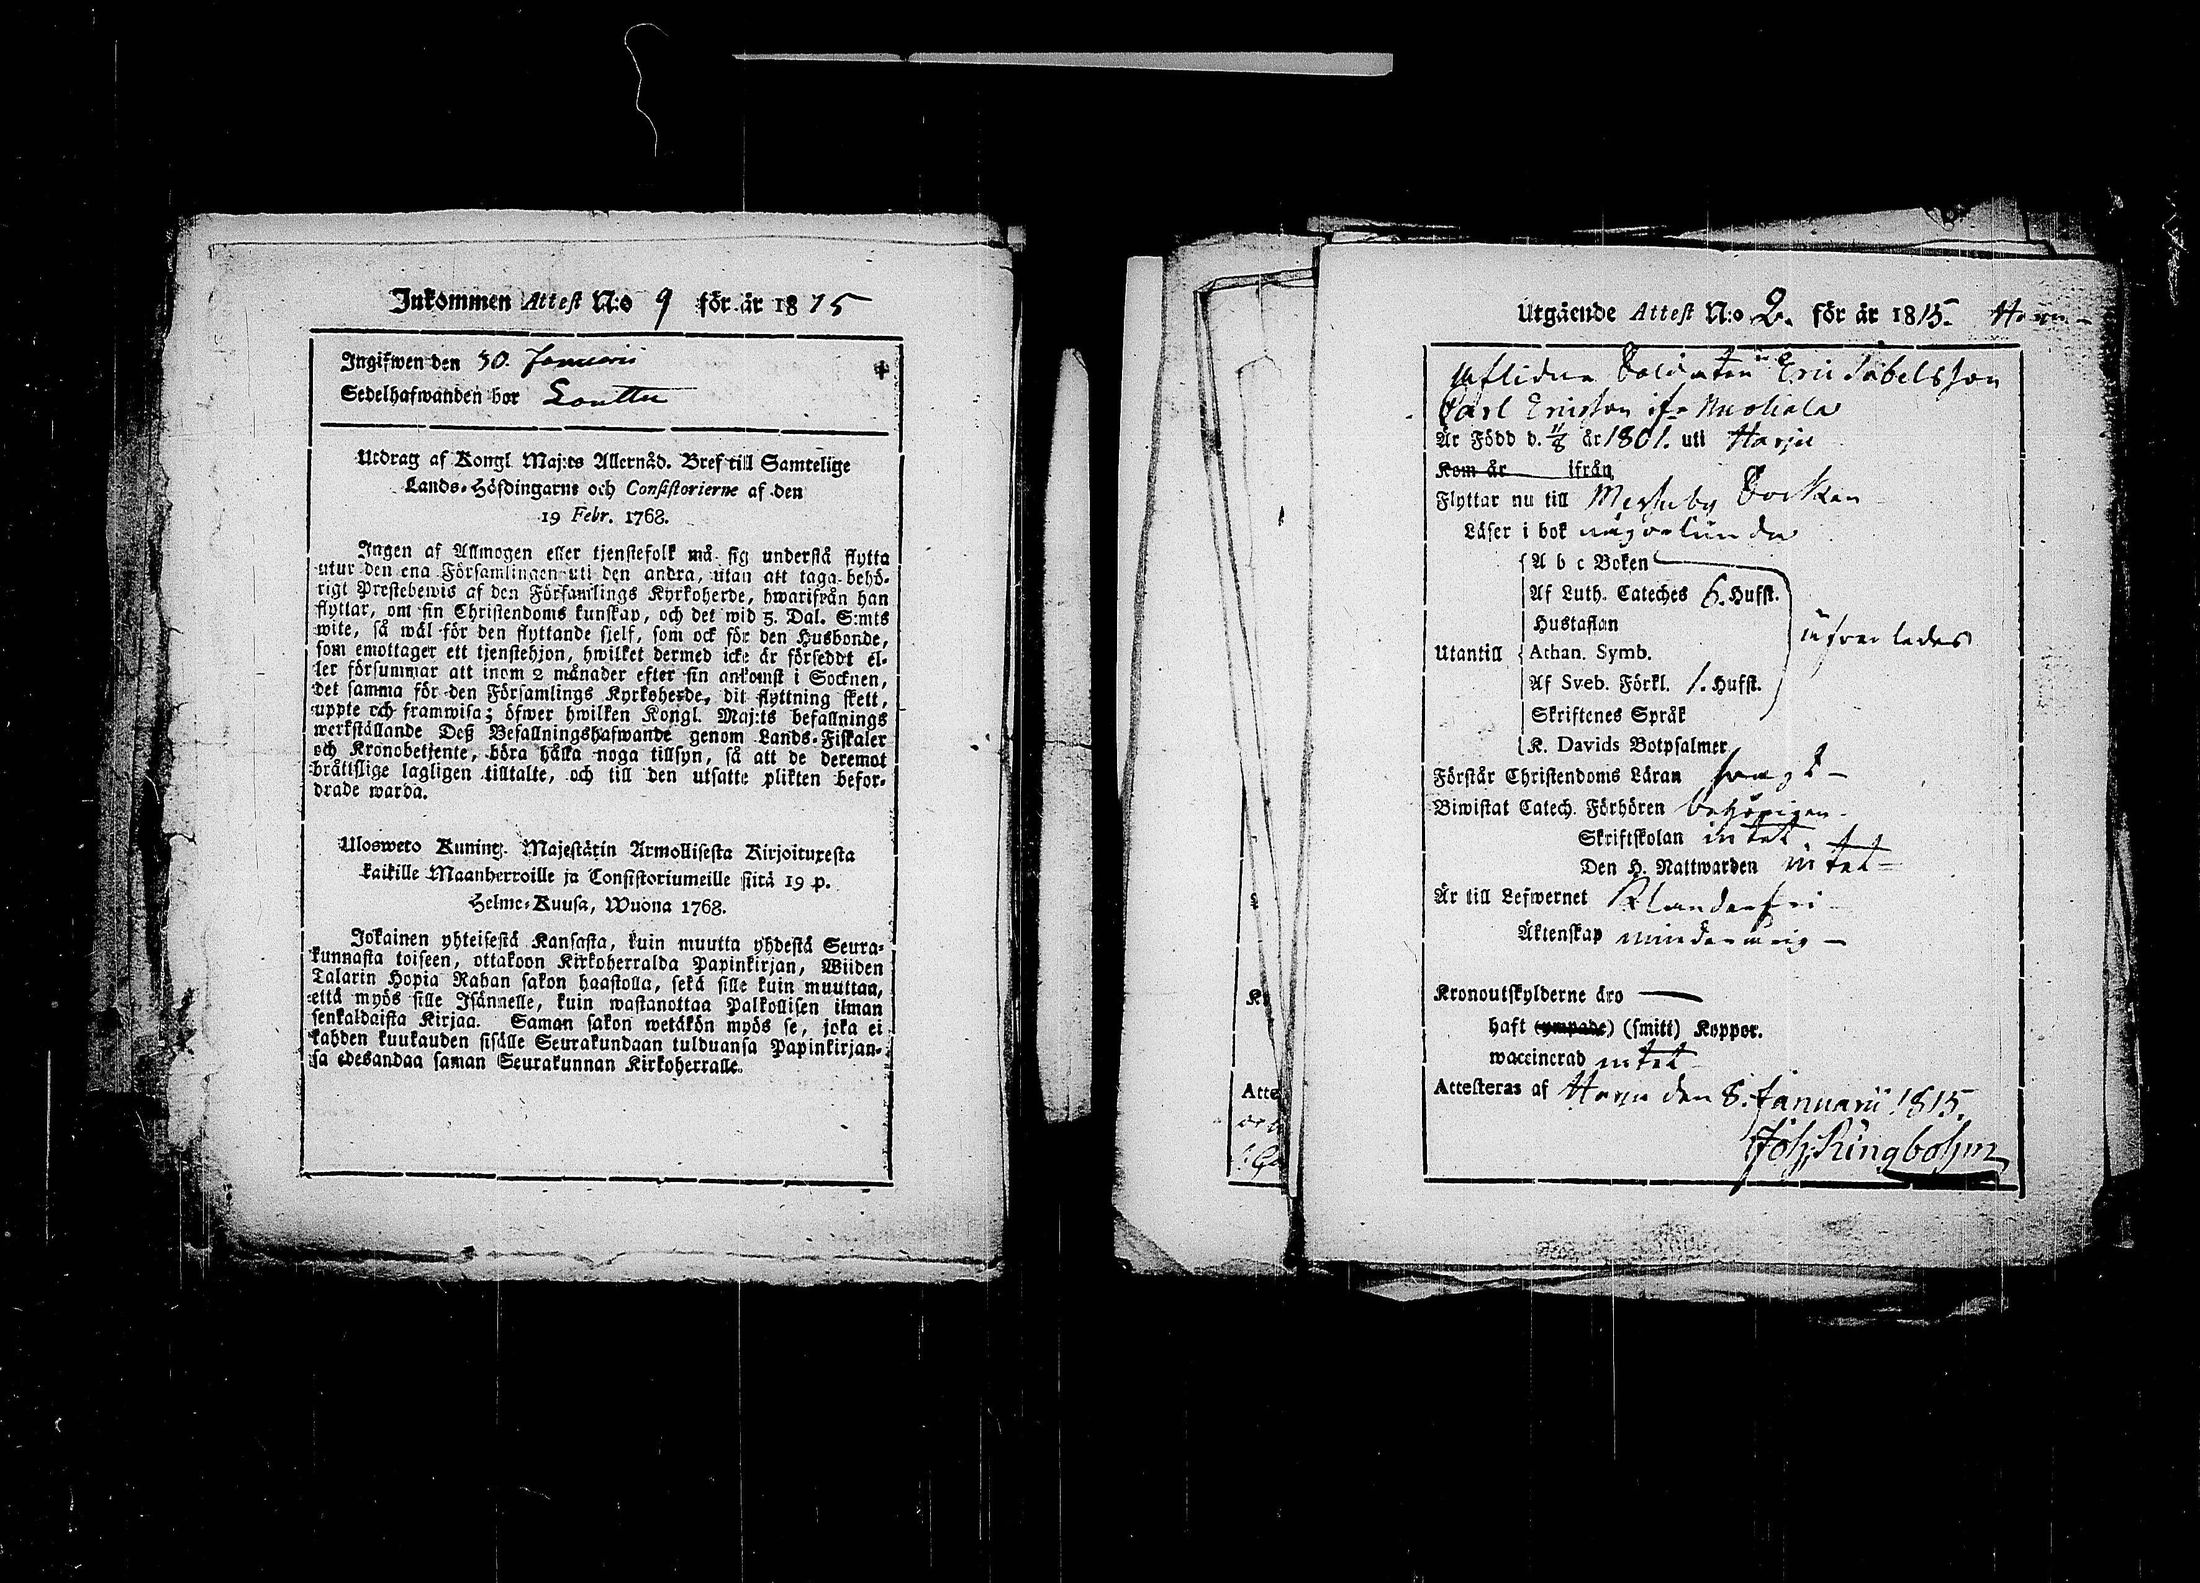 Inkommen Attest N:o 9 för år 1815
Ingifwen den 30. Januarii
Sedelhafwanden bor Louttu
Utdrag af Kongl Maj:ts Allernåd. Bref till Samtelige
Lands-Höfdingarne och Consistorierne af den
19 Febr. 1768.
Ingen af Allmogen eller tjenstefolk må sig understå flytta
utur den ena Församlingen uti den andra, utan att taga behö-
rigt Prestebewis af den Församlings Kyrkoherde, hwarifrån han
flyttar, om sin Christendoms kunskap, och det wid 5. Dal. S:mts
wite, så wäl för den flyttande sjelf, som ock för den Husbonde,
som emottager ett tjenstehjon, hwilket dermed icke är förseddt el-
ler försummar att inom 2 månader efter sin ankomst i Socknen,
det samma för den Församlings Kyrkoherde, dit flyttning skett,
uppte och framwisa; öfwer hwilken Kongl. Maj:ts befallnings
werkställande Deß Befallningshafwande genom Lands-Fiskaler
och Kronobetjente, böra hålla noga tillsyn, så att de deremot
bråttslige lagligen tilltalte, och till den utsatte plikten befor-
drade warda.
Ulosweto Kuning. Majestätin Armollisesta Kirjoituxesta
kaikille Maanherroille ja Consistoriumeille siitä 19 p.
Helme-Kuusa, Wuona 1768.
Jokainen yhteisestä Kansasta, kuin muutta yhdestä Seura-
kunnasta toiseen, ottakoon Kirkoherralda Papinkirjan, Wiiden
Talarin Hopia Rahan sakon haastolla, sekä sille kuin muuttaa,
että myös sille Isännelle, kuin wastanottaa Palkollisen ilman
senkaldaista Kirjaa. Saman sakon wetäkön myös se, joka ei
kahden kuukauden sisälle Seurakundaan tulduansa Papinkirjan-
sa edesandaa saman Seurakunnan Kirkoherralle.
Utgående Attest N:o 2. för år 1815.
aflidne Soldaten Eric Sabelsson
Carl Ericsson ifr
Är Född d. 11/8 år 1801. uti Harju
Kom år ifrån
Flyttar nu till Messuby Socken
Läser i bok någorlunda
A b c Boken
Af Luth. Cateches 6. Hufst.
Hustaflan
Utantill Athan. Symb.
Af Sveb. Förkl. 1. Hufst.
Skriftenes Språk
K. Davids Botpsalmer
Förstår Christendoms Läran svagt
Biwistat Catech. Förhören behörigen
Skriftskolan intet
Den H. Nattwarden intet
Är till Lefwernet Klanderfri
Äktenskap minderårig
Kronoutskylderne äro
haft (ympade) (smitt) Koppor.
waccinerad intet
Attesteras af Harju den 8. Januarii 1815.
Joh Ringbohm
Atte